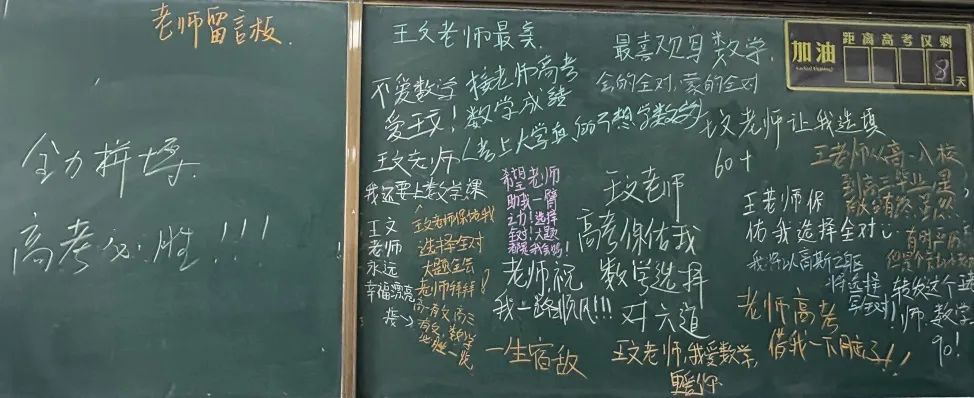 老师留言板.
全力拼搏.
高考必胜!!!
王文老师最美
不爱数学
爱王文!
接老师高考
数学成绩
(考上大学真的不想学数学
最喜欢写数学,
会的全对,蒙的全对
加油
距离高考仅剩
8天
王文老师让我选填
60+
王文老师
我还要上数学课
王文
老师
永远
幸福漂亮
王文老师保佑我
选择全对
大题全会
老师拜拜
希望老师
助我一臂
之力!选择
全对!大题
王文老师
高考保佑我
数学选择
对六道
老师祝
我一路顺风!!!
一生宿敌
王文老师,我爱数学,
王老师保
佑我选择全对
将选择
全对!
老师高考
借我一下脑子!!
王老师从高一入校
到高三毕业
转发这个王
师,数学
90!